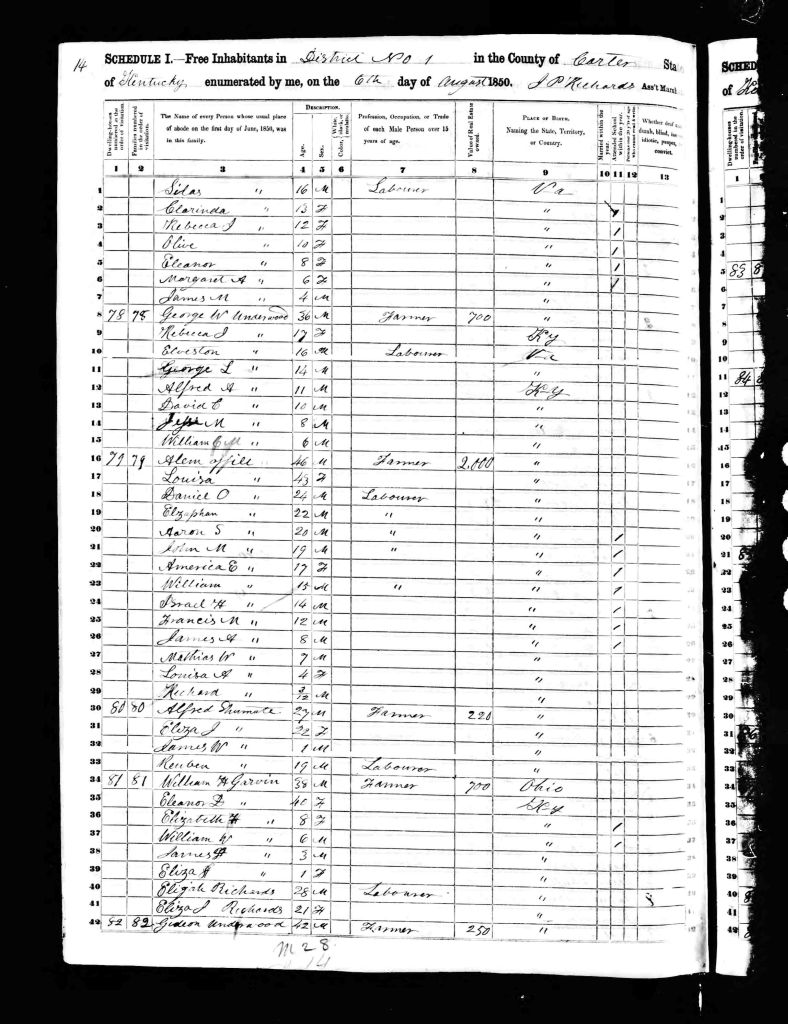 14 SCHEDULE I.—Free Inhabitants in District No 1 in the County of Carter Sta
of Kentucky enumerated by me, on the 6th day of August 1850. J P Richards Ass't Marsh
Dwelling-houses numbered in the order of visitation.
Families numbered in the order of visitation.
The Name of every Person whose usual place of abode on the first day of June, 1850, was in this family.
DESCRIPTION.
Age.
Sex.
Color, White, black, or mulatto.
Profession, Occupation, or Trade of each Male Person over 15 years of age.
Value of Real Estate owned.
PLACE OF BIRTH. Naming the State, Territory, or Country.
Married within the year.
Attended School within the year.
Whether deaf and dumb, blind, insane, idiotic, pauper, or convict.
1 2 3 4 5 6 7 8 9 10 11 12 13
1 Silas " 16 M Labourer Va
2 Clarinda " 13 F " 1
3 Rebecca J " 12 F " 1
4 Olive " 10 F " 1
5 Eleanor " 8 F " 1
6 Margaret A " 6 F " 1
7 James M " 4 M "
8 78 78 George W Underwood 36 M Farmer 700 "
9 Rebecca J " 17 F Ky
10 Elveston " 16 M Labourer Va
11 George L " 14 M "
12 Alfred A " 11 M Ky
13 David C " 10 M "
14 Jesse M " 8 M "
15 William C M " 6 M "
16 79 79 Alem 46 M Farmer 2,000 "
17 Louisa " 43 F "
18 Daniel O " 24 M Labourer "
19 Elzaphan " 22 M " "
20 Aaron S " 20 M " " 1
21 John M " 19 M " " 1
22 America E " 17 F " 1
23 William " 15 M " " 1
24 Israel H " 14 M " 1
25 Francis M " 12 M " 1
26 James A " 8 M " 1
27 Mathias W " 7 M "
28 Louisa A " 4 F "
29 Richard " 3/12 M "
30 80 80 Alfred Shumate 27 M Farmer 220 "
31 Eliza J " 22 F "
32 James W " 1 M "
33 Reuben " 19 M Labourer "
34 81 81 William H Garvin 38 M Farmer 700 Ohio
35 Eleanor D " 40 F Ky
36 Elizabeth " 8 F " 1
37 William W " 6 M " 1
38 James " 3 M "
39 Eliza " 1 F "
40 Elijah Richards 28 M Labourer "
41 Eliza J Richards 21 F "
42 82 82 Gideon Underwood 42 M Farmer 250 "
M 28
14
SCHED
of
1
83
84